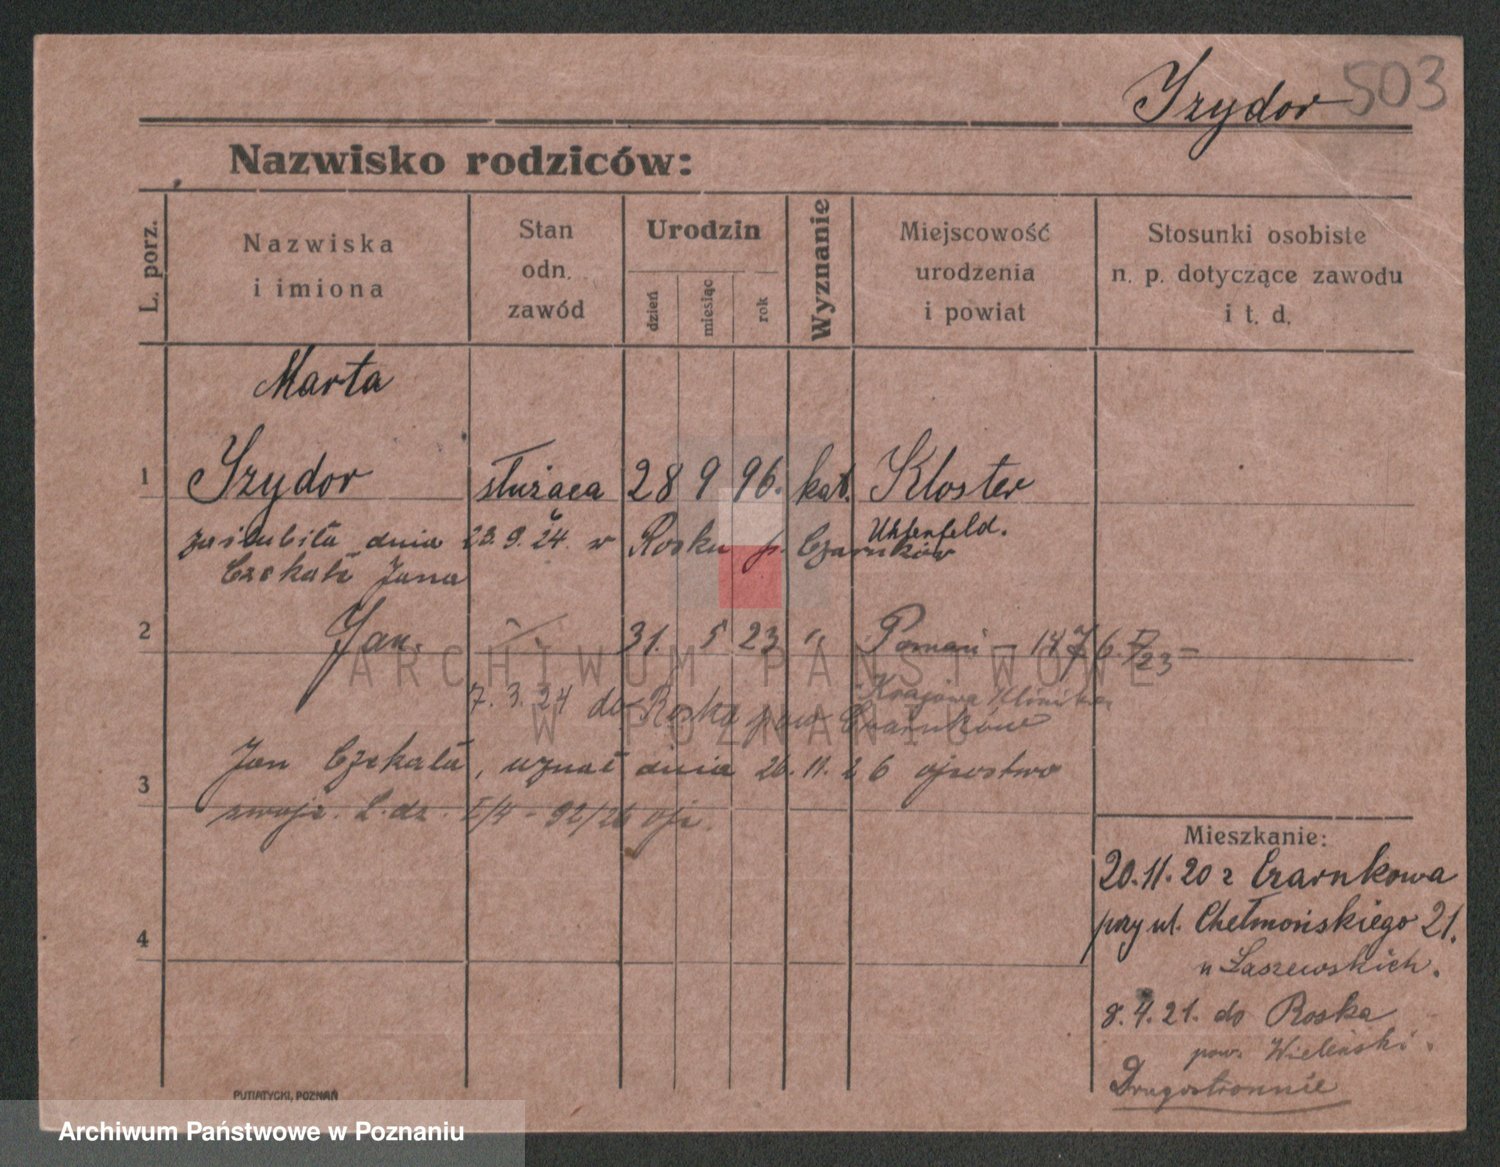 Izydor 503
Nazwisko rodziców:
L. porz.
Nazwiska
i imiona
Stan
odn.
zawód
Urodzin
dzień
miesiąc
rok
Wyznanie
Miejscowość
urodzenia
i powiat
Stosunki osobiste
n. p. dotyczące zawodu
i t. d.
Marta
1 Izydor służąca 28 9 96. kat. Kloster
zaślubiła dnia 23.9.24 w Rosku p. Czarnków
Czekała Jana
2 Jan. 31. 5 23 " Poznań
Krajowa Klinika
7. 3. 24 do Roska pow. Czarnków
Jan Czekała, uznał dnia 26.11.26 ojcostwo
3
swoje. L. dz. I/4 - 92/26
4
Mieszkanie:
20.11.20 z Czarnkowa
przy ul. Chełmońskiego 21.
u Łaszewskich.
8.4.21. do Roska
pow. Wieleński.
Drugostronnie
PUTIATYCKI, POZNAŃ
ARCHIWUM PAŃSTWOWE
W POZNANIU
Archiwum Państwowe w Poznaniu